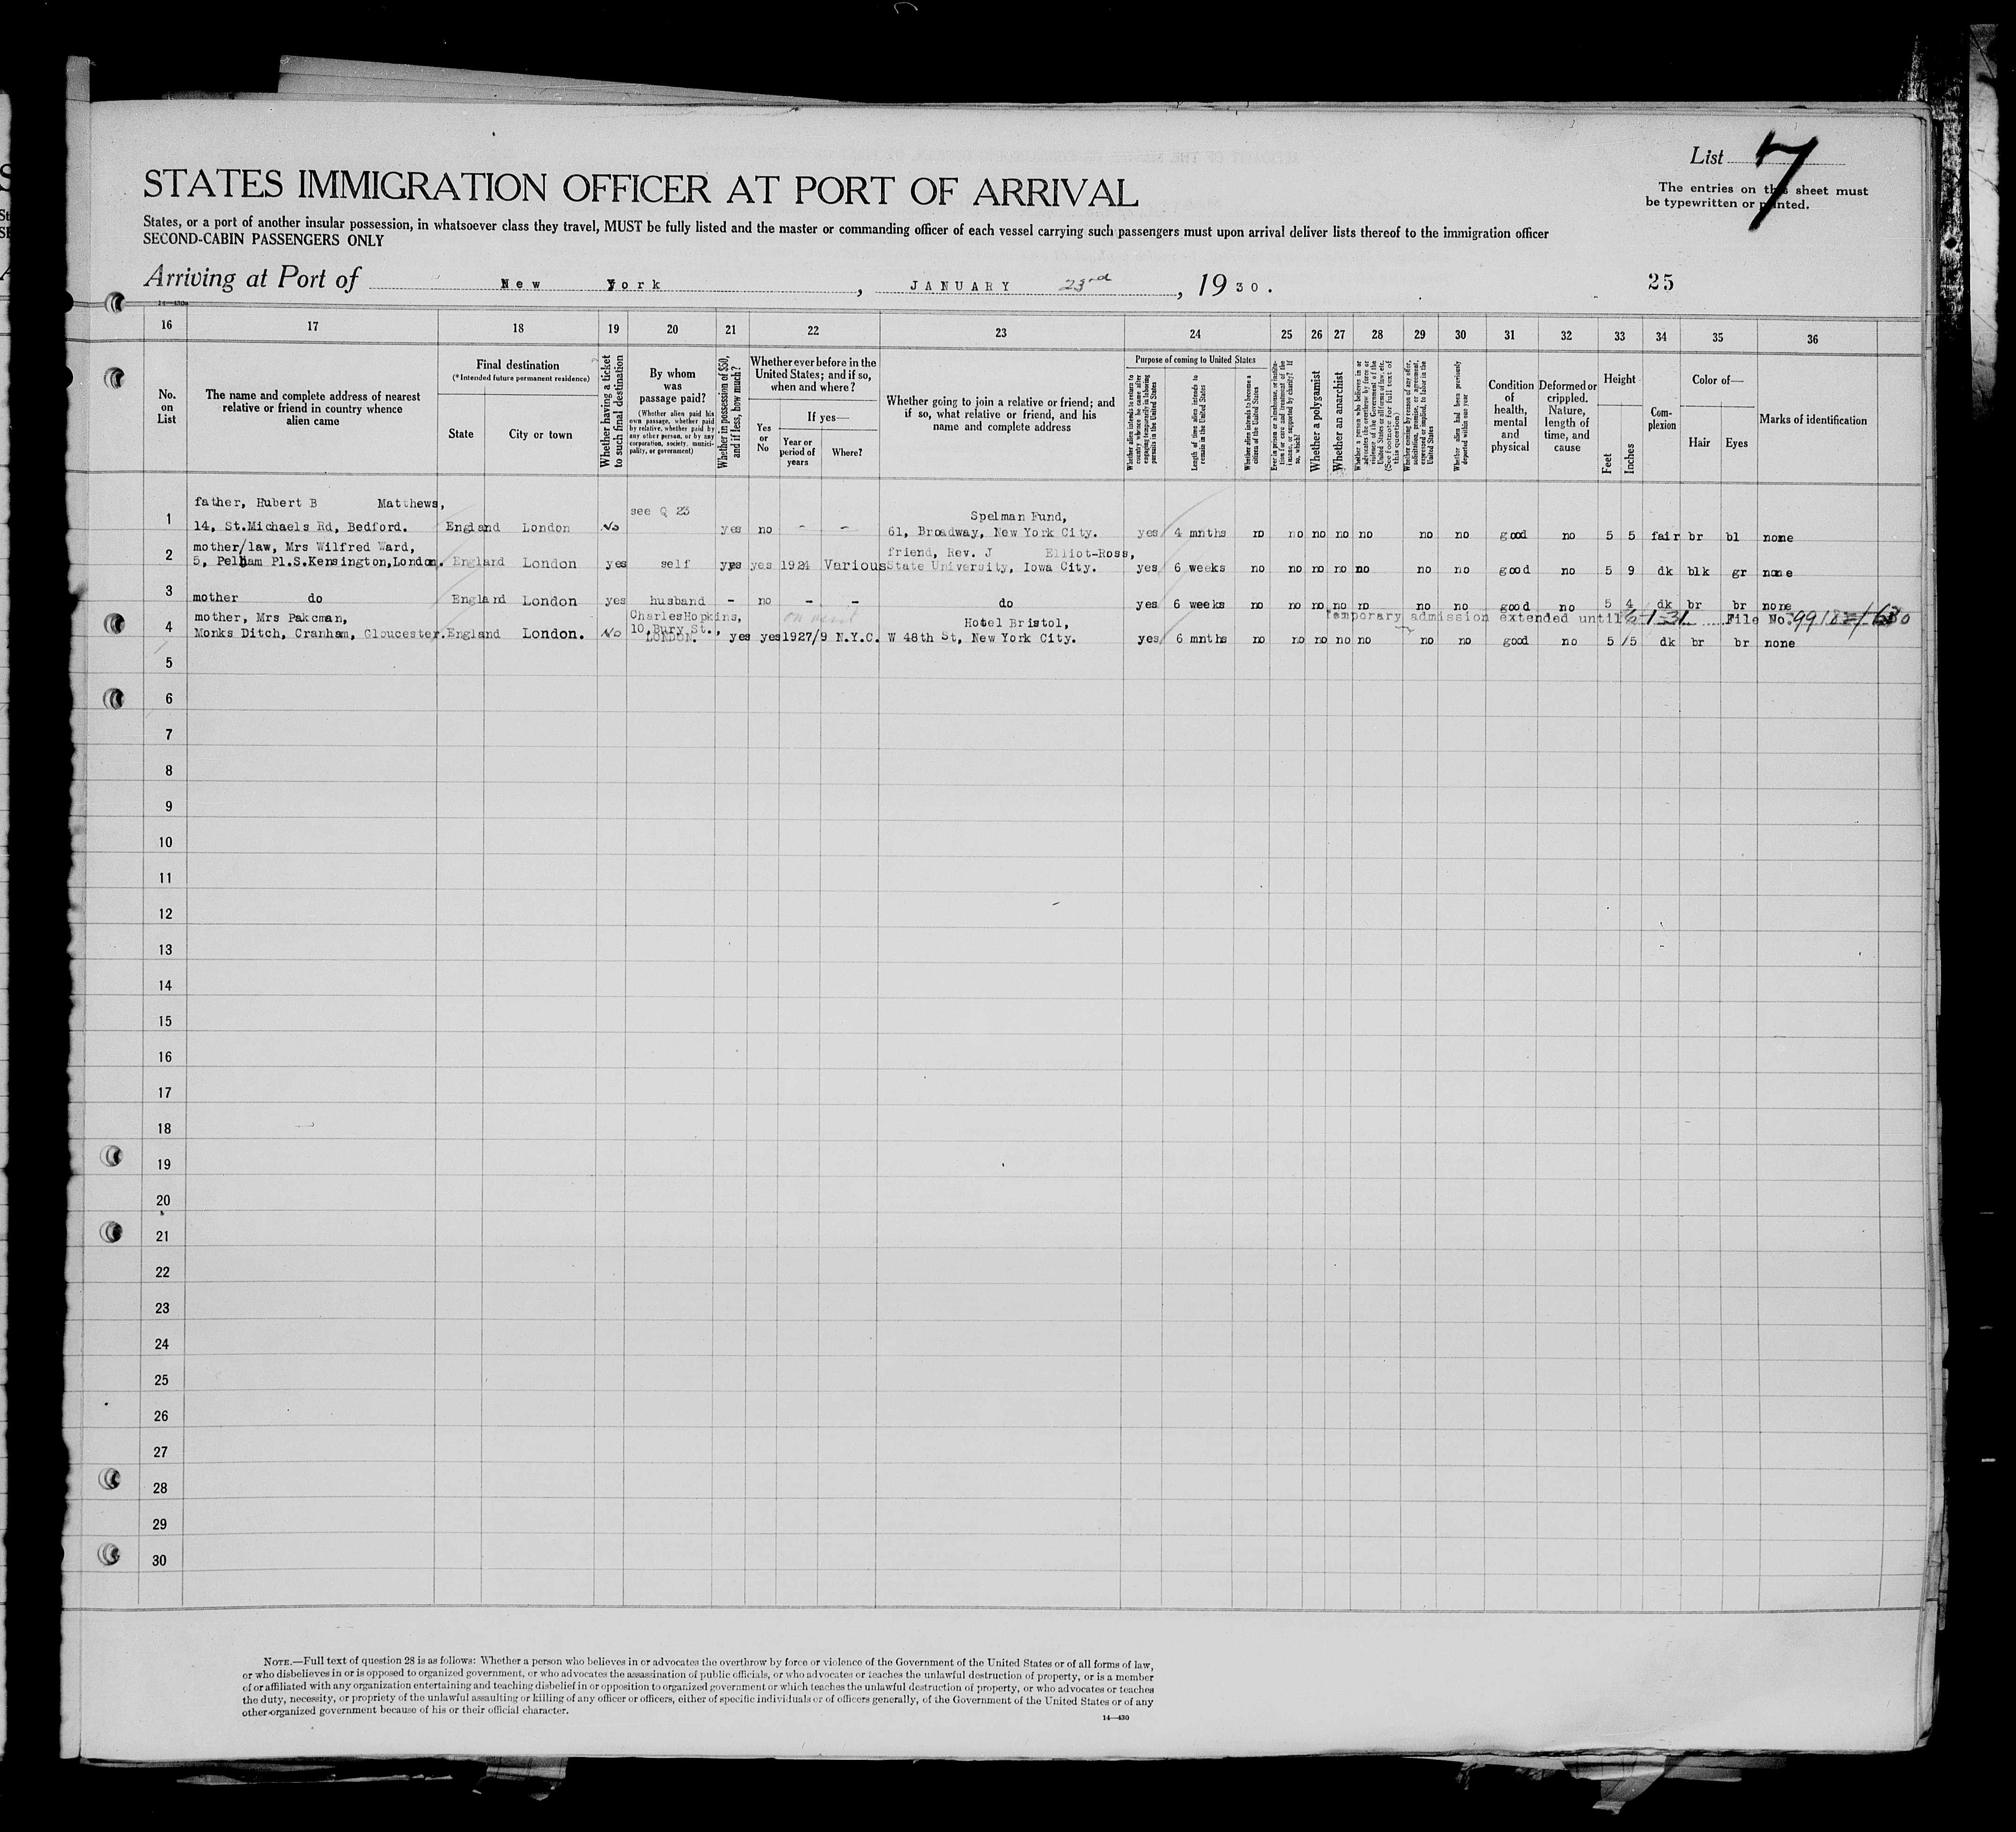 List 7
The entries on this sheet must
be typewritten or printed.
STATES IMMIGRATION OFFICER AT PORT OF ARRIVAL
States, or a port of another insular possession, in whatsoever class they travel, MUST be fully listed and the master or commanding officer of each vessel carrying such passengers must upon arrival deliver lists thereof to the immigration officer
SECOND-CABIN PASSENGERS ONLY
Arriving at Port of New York, JANUARY 23rd, 1930.
25
14—430
16 17 18 19 20 21 22 23 24 25 26 27 28 29 30 31 32 33 34 35 36
No. on List
The name and complete address of nearest relative or friend in country whence alien came
Final destination
(*Intended future permanent residence)
State
City or town
Whether having a ticket to such final destination
By whom was passage paid?
(Whether alien paid his own passage, whether paid by relative, whether paid by any other person, or by any corporation, society, municipality, or government)
Whether in possession of $50, and if less, how much?
Whether ever before in the United States; and if so, when and where?
Yes or No
If yes—
Year or period of years
Where?
Whether going to join a relative or friend; and if so, what relative or friend, and his name and complete address
Purpose of coming to United States
Whether alien intends to return to country whence he came after engaging temporarily in laboring pursuits in the United States
Length of time alien intends to remain in the United States
Whether alien intends to become a citizen of the United States
Ever in prison or almshouse, or institution for care and treatment of the insane, or supported by charity? If so, which?
Whether a polygamist
Whether an anarchist
Whether a person who believes in or advocates the overthrow by force or violence of the Government of the United States or all forms of law, etc. (See footnote for full text of this question)
Whether coming by reason of any offer, solicitation, promise, or agreement, expressed or implied, to labor in the United States
Whether alien had been previously deported within one year
Condition of health, mental and physical
Deformed or crippled. Nature, length of time, and cause
Height
Feet
Inches
Complexion
Color of—
Hair
Eyes
Marks of identification
father, Hubert B Matthews,
see Q 23
Spelman Fund,
1 14, St.Michaels Rd, Bedford. England London No yes no - - 61, Broadway, New York City. yes 4 mnths no no no no no no no good no 5 5 fair br bl none
mother/law, Mrs Wilfred Ward,
friend, Rev. J Elliot-Ross,
2 5, Pelham Pl.S.Kensington,London. England London yes self yes yes 1924 Various State University, Iowa City. yes 6 weeks no no no no no no no good no 5 9 dk blk gr none
3 mother do England London yes husband - no - - do yes 6 weeks no no no no no no no good no 5 4 dk br br none
mother, Mrs Pakcman,
CharlesHopkins,
on visit
Hotel Bristol,
Temporary admission extended until File No.
4 Monks Ditch, Cranham, Gloucester. England London. No 10,Bury St., LONDON. yes yes 1927/9 N.Y.C. W 48th St, New York City. yes 6 mnths no no no no no no no good no 5 /5 dk br br none
5
6
7
8
9
10
11
12
13
14
15
16
17
18
19
20
21
22
23
24
25
26
27
28
29
30
NOTE.—Full text of question 28 is as follows: Whether a person who believes in or advocates the overthrow by force or violence of the Government of the United States or of all forms of law,
or who disbelieves in or is opposed to organized government, or who advocates the assassination of public officials, or who advocates or teaches the unlawful destruction of property, or is a member
of or affiliated with any organization entertaining and teaching disbelief in or opposition to organized government or which teaches the unlawful destruction of property, or who advocates or teaches
the duty, necessity, or propriety of the unlawful assaulting or killing of any officer or officers, either of specific individuals or of officers generally, of the Government of the United States or of any
other organized government because of his or their official character.
14—430